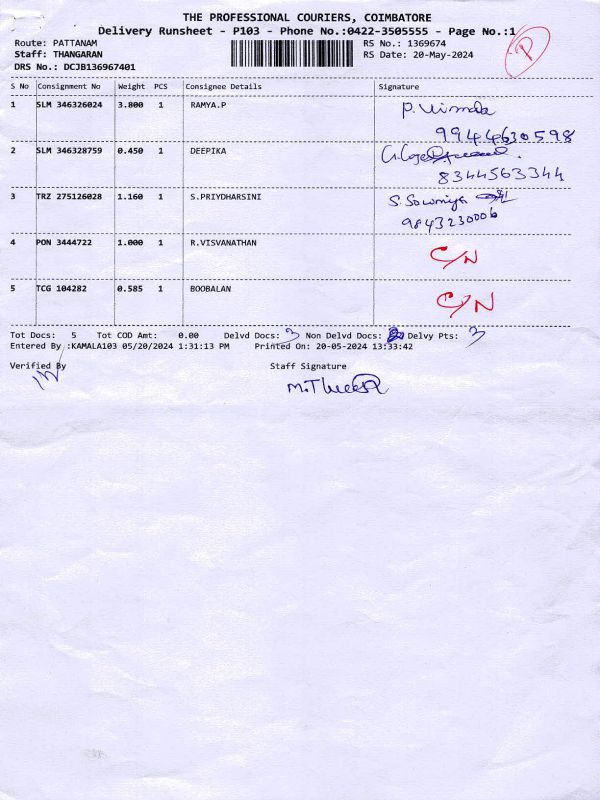 THE PROFESSIONAL COURIERS, COIMBATORE
Delivery Runsheet - P103 - Phone No.:0422-3505555 - Page No.:1
P
Route: PATTANAM RS No.: 1369674
Staff: THANGARAN RS Date: 20-May-2024
DRS No.: DCJB136967401
S No Consignment No Weight PCS Consignee Details Signature
1 SLM 346326024 3.800 1 RAMYA.P P. Vimala
9944630598
2 SLM 346328759 0.450 1 DEEPIKA
8344563344
3 TRZ 275126028 1.160 1 S.PRIYDHARSINI S. Sowmiya
9843230006
4 PON 3444722 1.000 1 R.VISVANATHAN C/N
5 TCG 104282 0.585 1 BOOBALAN C/N
Tot Docs: 5 Tot COD Amt: 0.00 Delvd Docs: 3 Non Delvd Docs: Delvy Pts: 3
Entered By :KAMALA103 05/20/2024 1:31:13 PM Printed On: 20-05-2024 13:33:42
Verified By Staff Signature